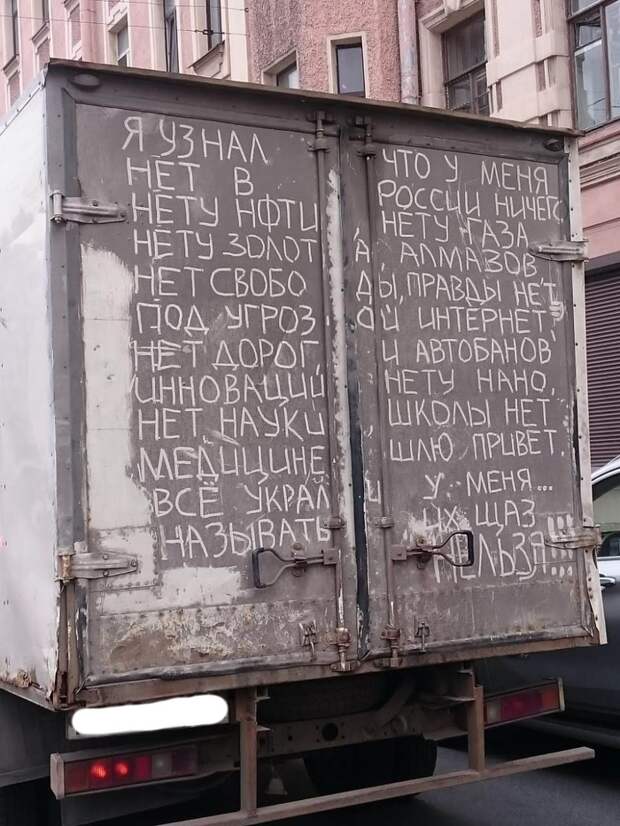 Я УЗНАЛ ЧТО У МЕНЯ
НЕТ В РОССИИ НИЧЕГО
НЕТУ НФТИ НЕТУ ГАЗА
НЕТУ ЗОЛОТА АЛМАЗОВ
НЕТ СВОБОДЫ, ПРАВДЫ НЕТ
ПОД УГРОЗОЙ ИНТЕРНЕТ
НЕТ ДОРОГ И АВТОБАНОВ
ИННОВАЦИЙ НЕТУ НАНО,
НЕТ НАУКИ ШКОЛЫ НЕТ
МЕДИЦИНЕ ШЛЮ ПРИВЕТ.
ВСЁ УКРАЛИ У МЕНЯ...
НАЗЫВАТЬ ИХ ЩАЗ НЕЛЬЗЯ!!!